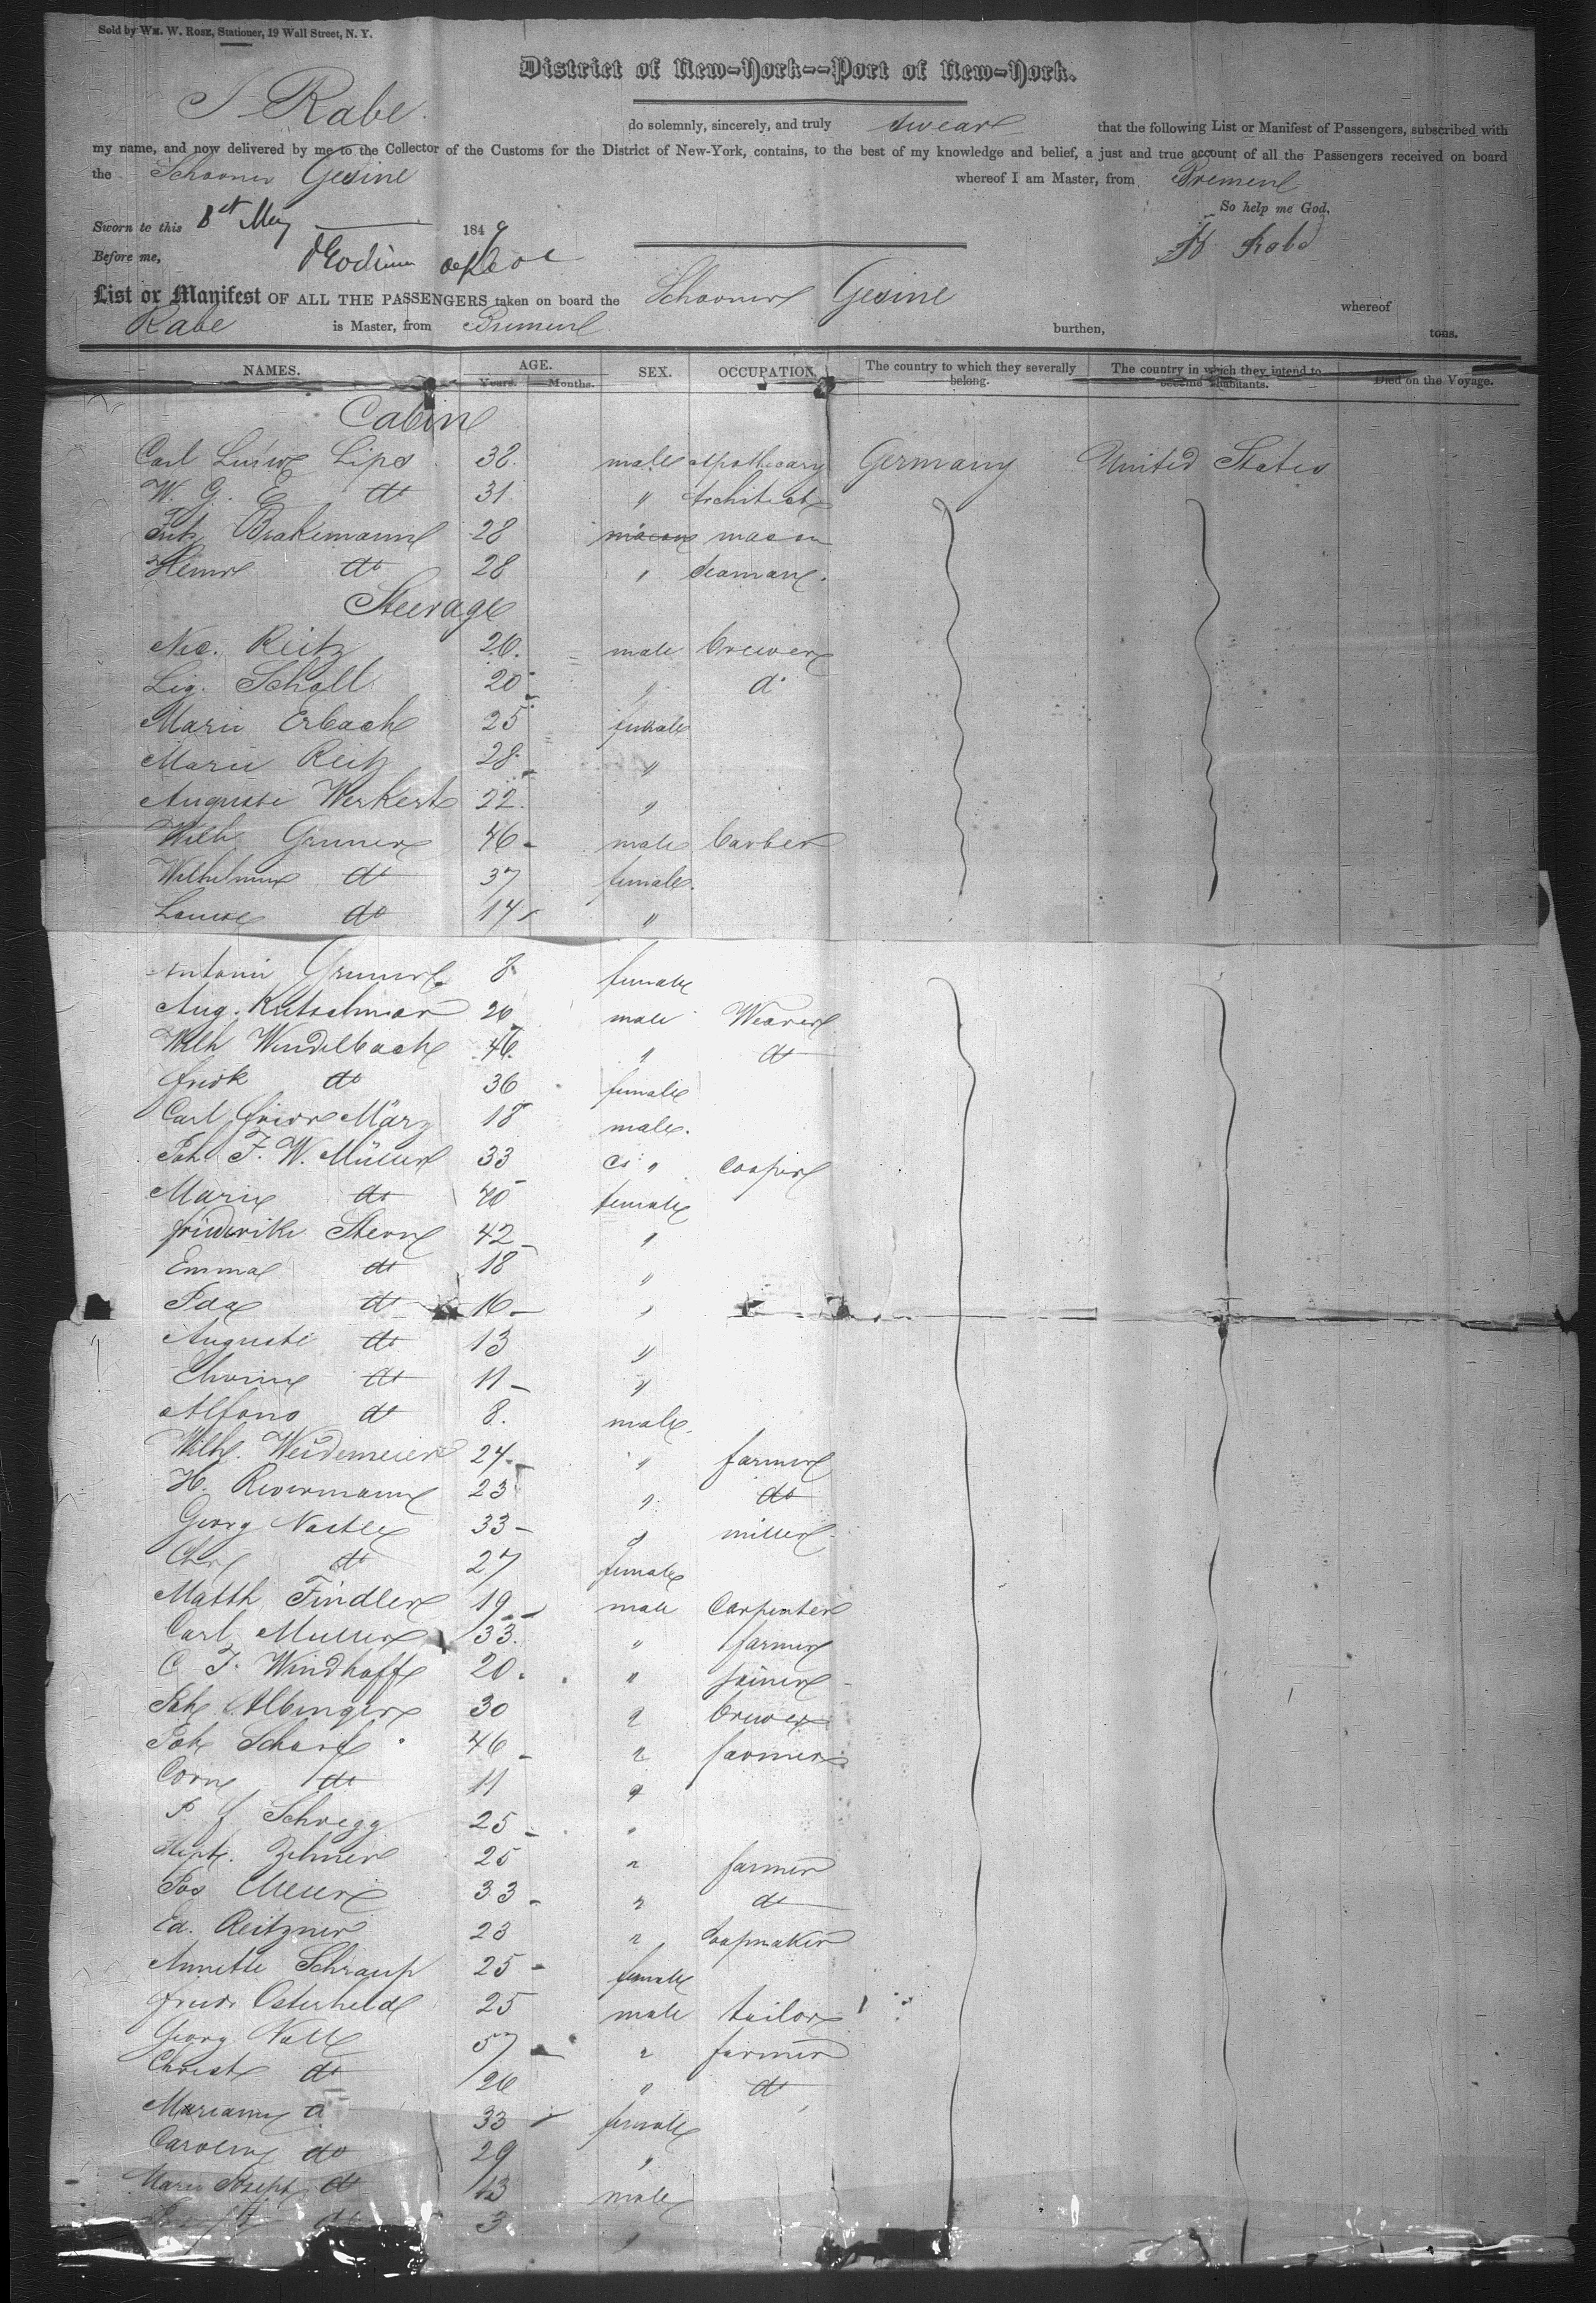 Sold by Wm. W. Rose, Stationer, 19 Wall Street, N. Y.
District of New-York--Port of New-York.
I Rabe do solemnly, sincerely, and truly swear that the following List or Manifest of Passengers, subscribed with
my name, and now delivered by me to the Collector of the Customs for the District of New-York, contains, to the best of my knowledge and belief, a just and true account of all the Passengers received on board
the Schooner Gesine whereof I am Master, from Bremen
So help me God.
Sworn to this 1st May 1849
Rabe
Before me,
List or Manifest OF ALL THE PASSENGERS taken on board the Schooner Gesine whereof
Rabe is Master, from Bremen burthen, tons.
NAMES. AGE. SEX. OCCUPATION. The country to which they severally belong. The country in which they intend to become inhabitants. Died on the Voyage.
Years. Months.
Cabin
Carl Lips 32 male Apothecary Germany United States
W. G. E. do 31 " Architect
Fritz Brakemann 28 mason
do 28 " Seaman
Steerage
Nic. Reitz 26 male brewer
Lig. Scholl 20 " do
Marie Erbach 25 female
Marie Reitz 28 "
Auguste Werkert 22 "
Wilh Gruner 46 male barber
Wilhelmine do 37 female
Louise do 14 "
Antonie Gruner 8 female
Aug. Kretschmar 26 male Weaver
Wilh Windelbach 46 " do
Fridk do 36 female
Carl Friedr März 18 male
Joh F. W. Müller 33 " Cooper
Marie do 40 female
Friederike Stern 42 "
Emma do 18 "
Ida do 16 "
Auguste do 13 "
do 11 "
Alfons do 8 male
Wilh. Weidemeier 24 " farmer
H. Revermann 23 " do
Georg Nastle 33 " miller
do 27 female
Matth Findler 19 male Carpenter
Carl Muller 33 " farmer
C. F. Windhoff 20 " joiner
Joh Albinger 30 " brewer
Joh Scharf 46 " farmer
Corn do 11 "
P f Schregg 25 "
Zehner 25 " farmer
Jos Meier 33 " do
Ed. Reitzner 23 " Soapmaker
Annette Schraup 25 female
Friedr Osterheld 25 male tailor
Georg Noll 57 " farmer
Christ do 26 " do
Marianne do 33 female
Caroline do 29 "
Joseph do 13 male
do 3 "